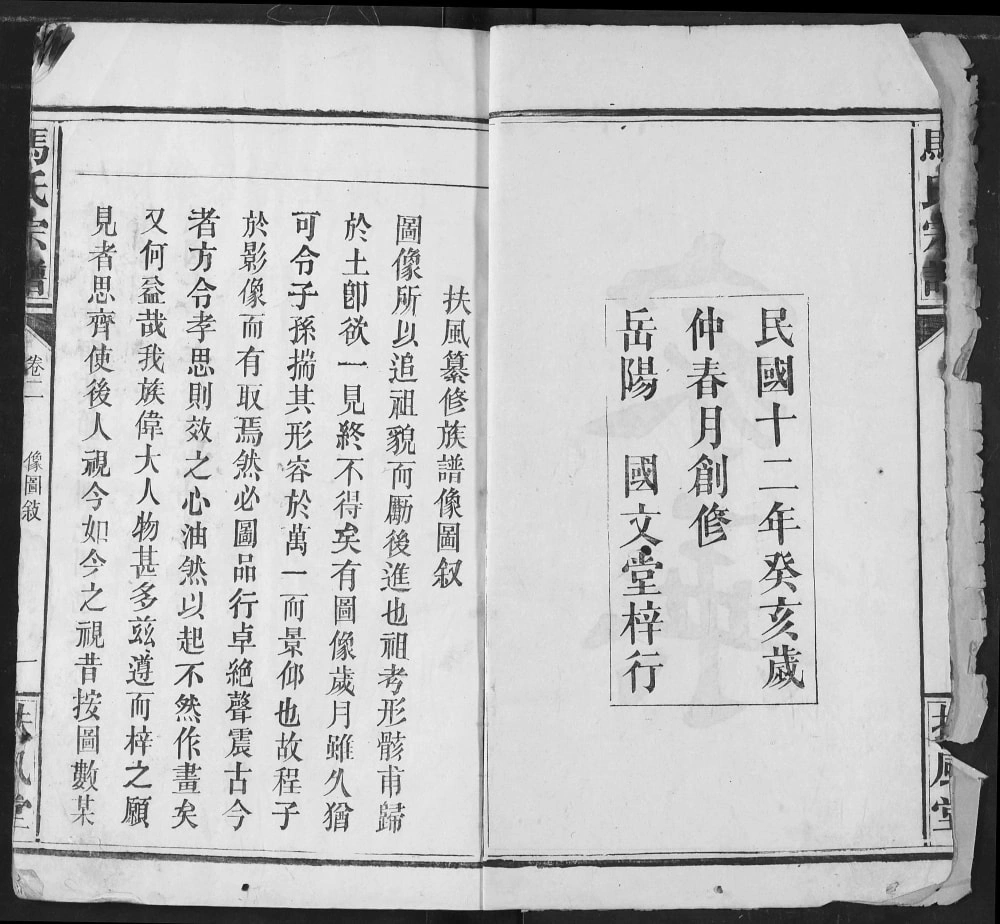 馬氏宗譜
扶風堂
民國十二年癸亥歲
仲春月創修
岳陽 國文堂梓行
扶風纂修族譜像圖叙
圖像所以追祖貌而勵後進也祖考形骸甫歸
於土卽欲一見終不得矣有圖像歲月雖久猶
可令子孫揣其形容於萬一而景仰也故程子
於影像而有取焉然必圖品行卓絕聲震古今
者方令孝思則效之心油然以起不然作畫矣
又何益哉我族偉大人物甚多茲遵而梓之願
見者思齊使後人視今如今之視昔按圖數某
馬氏宗譜
卷二
像圖敍
一
扶風堂